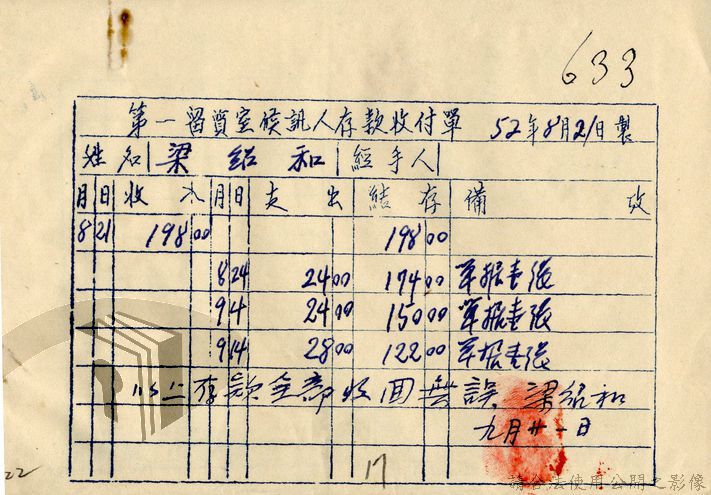 633
第一留質室候訊人存款收付單 52年8月21日製
姓名 梁紹和 經手人
月 日 收入 月 日 支出 結存 備攷
8 21 198 00 198 00
8 24 24 00 174 00 單据壹張
9 4 24 00 150 00 單据壹張
9 14 28 00 122 00 單据壹張
以上存款全部收回無誤 梁紹和
九月廿一日
22
17
請合法使用公開之影像